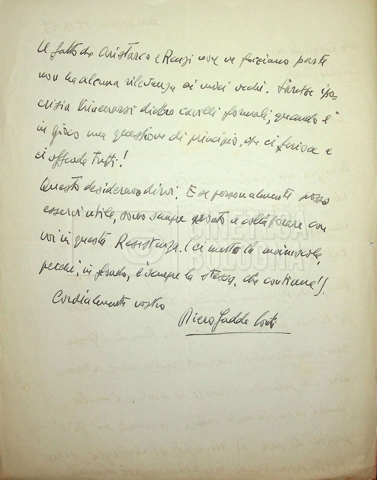 Il fatto che Aristarco e Renzi non ne facciano parte
non ha alcuna rilevanza ai miei occhi. Sarebbe ipo-
crisia trincerarsi dietro cavilli formali, quando è
in gioco una questione di principio, che ci ferisce e
ci offende tutti!
Questo desideravo dirvi. E se personalmente posso
esservi utile, sono sempre pronto a collaborare con
voi in questa Resistenza. (ci metto la maiuscola,
perché, in fondo, è sempre la stessa, che continua!).
Cordialmente vostro
Piero Gadda Conti